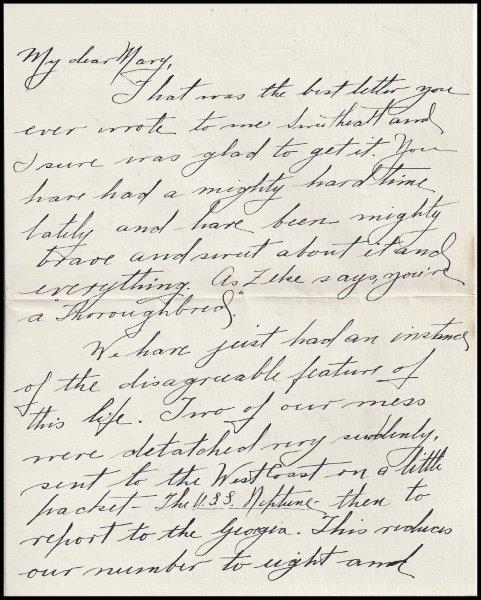 My dear Mary,
That was the best letter you
ever wrote to me Switheatt and
I sure was glad to get it. You
have had a mighty hard time
lately and have been mighty
brave and sweet about it and
everything. As Zeke says, you're
a "Thoroughbred."
We have just had an instance
of the disagreeable feature of
this life. Two of our mess
were detatched very suddenly,
sent to the West Coast on a little
packet - The U.S.S. Neptune - then to
report to the Georgia. This reduces
our number to eight and